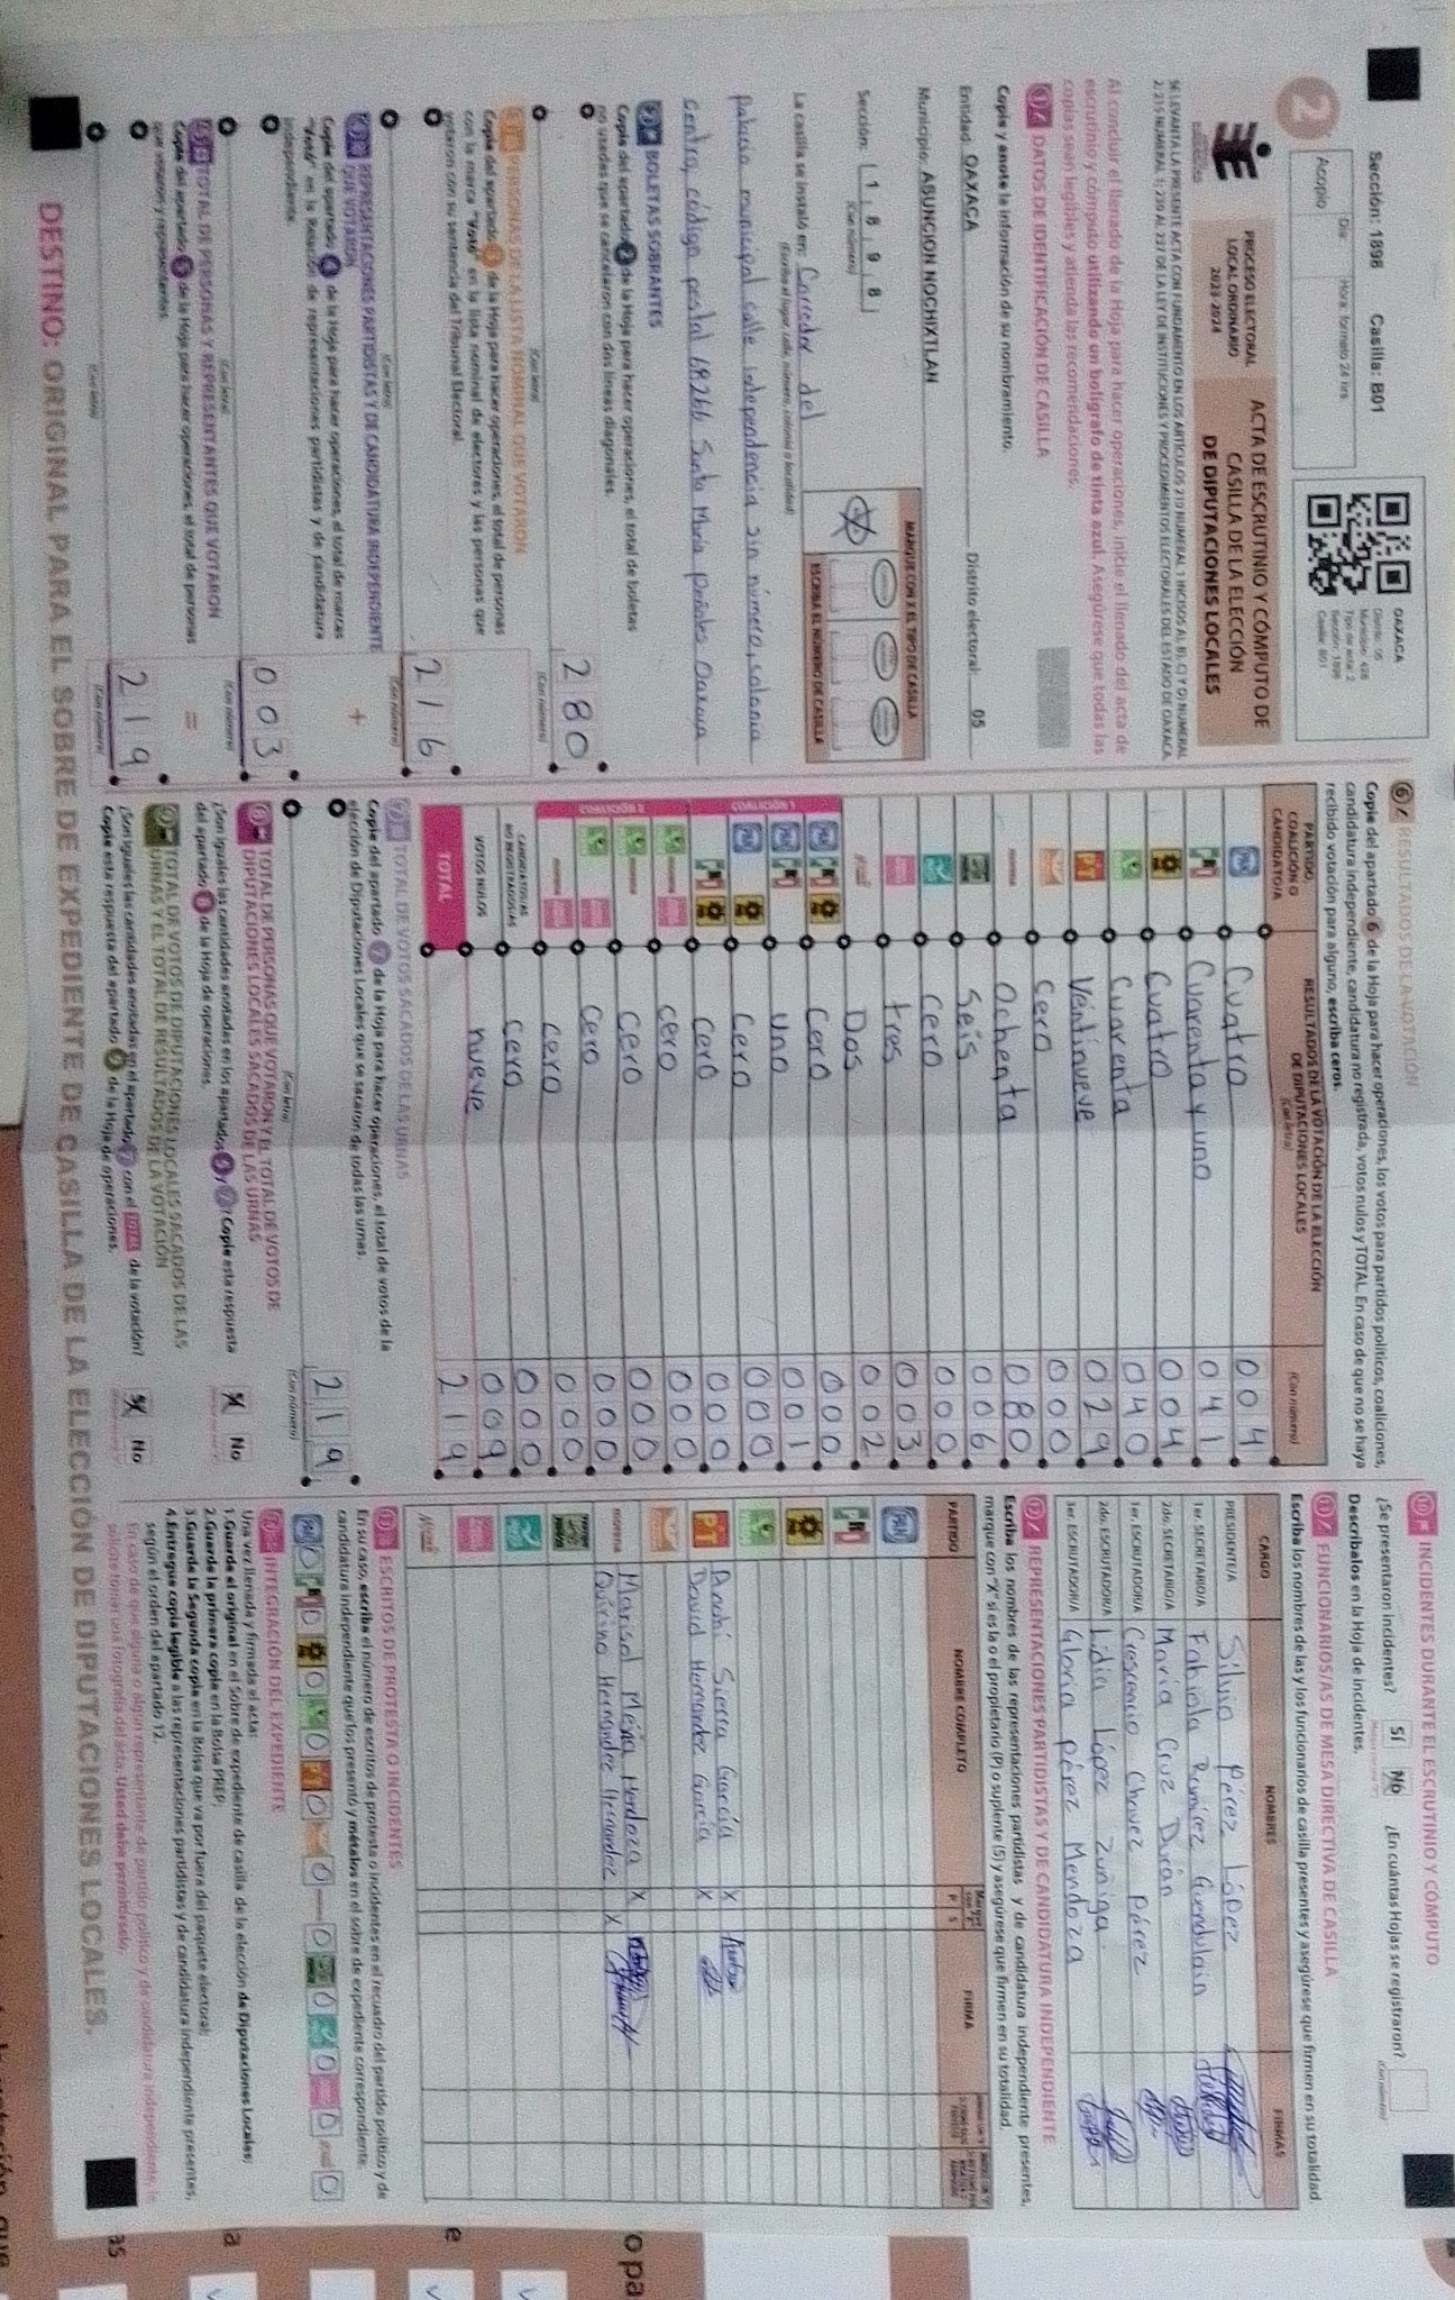 Sección: 1898 Casilla: B01
2
Acopio
Día
Hora: formato 24 hrs
OAXACA
Distrito: 05
Municipio: 426
Tipo de acta: 2
Sección: 1898
Casilla: B01
PROCESO ELECTORAL
LOCAL ORDINARIO
2023-2024
ACTA DE ESCRUTINIO Y CÓMPUTO DE
CASILLA DE LA ELECCIÓN
DE DIPUTACIONES LOCALES
Al concluir el llenado de la Hoja para hacer operaciones, inicie el llenado del acta de
escrutinio y cómputo utilizando un bolígrafo de tinta azul. Asegúrese que todas las
copias sean legibles y atienda las recomendaciones.
1 DATOS DE IDENTIFICACIÓN DE CASILLA
Copie y anote la información de su nombramiento.
Entidad: OAXACA Distrito electoral: 05
Municipio: ASUNCION NOCHIXTLAN
Sección: 1 8 9 8
(Con número)
MARQUE CON X EL TIPO DE CASILLA
ESCRIBA EL NÚMERO DE CASILLA
La casilla se instaló en: Corredor del
(Escriba el lugar, calle, número, colonia o localidad)
Palacio municipal calle independencia sin número, colonia
Centro, código postal 68266 Santa María Peñoles Oaxaca
2 BOLETAS SOBRANTES
Copie del apartado 2 de la Hoja para hacer operaciones, el total de boletas
no usadas que se cancelaron con dos líneas diagonales.
280
(Con letra) (Con número)
3 PERSONAS DE LA LISTA NOMINAL QUE VOTARON
Copie del apartado 3 de la Hoja para hacer operaciones, el total de personas
con la marca "Votó" en la lista nominal de electores y las personas que
votaron con su sentencia del Tribunal Electoral.
216
(Con letra) (Con número)
4 REPRESENTACIONES PARTIDISTAS Y DE CANDIDATURA INDEPENDIENTE
QUE VOTARON
+
Copie del apartado 4 de la Hoja para hacer operaciones, el total de marcas
"Votó" en la Relación de representaciones partidistas y de candidatura
independiente.
003
(Con letra) (Con número)
5 TOTAL DE PERSONAS Y REPRESENTANTES QUE VOTARON
=
Copie del apartado 5 de la Hoja para hacer operaciones, el total de personas
que votaron y representantes.
219
(Con letra) (Con número)
6 RESULTADOS DE LA VOTACIÓN
Copie del apartado 6 de la Hoja para hacer operaciones, los votos para partidos políticos, coaliciones,
candidatura independiente, candidatura no registrada, votos nulos y TOTAL. En caso de que no se haya
recibido votación para alguno, escriba ceros.
PARTIDO,
COALICIÓN O
CANDIDATO/A
RESULTADOS DE LA VOTACIÓN DE LA ELECCIÓN
DE DIPUTACIONES LOCALES
(Con letra)
(Con número)
PAN Cuatro 004
PRI Cuarenta y uno 041
PRD Cuatro 004
Cuarenta 040
PT Veintinueve 029
Cero 000
morena Ochenta 080
Seis 006
Cero 000
tres 003
Dos 002
COALICIÓN 1
PAN PRI PRD Cero 000
PAN PRI uno 001
PAN PRD Cero 000
PRI PRD Cero 000
COALICIÓN 2
morena cero 000
morena Cero 000
Cero 000
morena cero 000
CANDIDATOS/AS
NO REGISTRADOS/AS Cero 000
VOTOS NULOS nueve 009
TOTAL 219
7 TOTAL DE VOTOS SACADOS DE LAS URNAS
Copie del apartado 7 de la Hoja para hacer operaciones, el total de votos de la
elección de Diputaciones Locales que se sacaron de todas las urnas.
219
(Con letra) (Con número)
8 TOTAL DE PERSONAS QUE VOTARON Y EL TOTAL DE VOTOS DE
DIPUTACIONES LOCALES SACADOS DE LAS URNAS
¿Son iguales las cantidades anotadas en los apartados 5 y 7? Copie esta respuesta
del apartado 8 de la Hoja de operaciones.
Sí No
9 TOTAL DE VOTOS DE DIPUTACIONES LOCALES SACADOS DE LAS
URNAS Y EL TOTAL DE RESULTADOS DE LA VOTACIÓN
¿Son iguales las cantidades anotadas en el apartado 7 con el TOTAL de la votación?
Copie esta respuesta del apartado 9 de la Hoja de operaciones.
Sí No
10 INCIDENTES DURANTE EL ESCRUTINIO Y CÓMPUTO
¿Se presentaron incidentes? Sí No ¿En cuántas Hojas se registraron?
(Con número)
Descríbalos en la Hoja de incidentes.
11 FUNCIONARIOS/AS DE MESA DIRECTIVA DE CASILLA
Escriba los nombres de las y los funcionarios de casilla presentes y asegúrese que firmen en su totalidad.
CARGO NOMBRES FIRMAS
PRESIDENTE/A Silvia Pérez López
1er. SECRETARIO/A Fabiola Ramírez Guendulain
2do. SECRETARIO/A María Cruz Durán
1er. ESCRUTADOR/A Crescencio Chavez Pérez
2do. ESCRUTADOR/A Lidia López Zuñiga
3er. ESCRUTADOR/A Gloria Pérez Mendoza
12 REPRESENTACIONES PARTIDISTAS Y DE CANDIDATURA INDEPENDIENTE
Escriba los nombres de las representaciones partidistas y de candidatura independiente presentes,
marque con "X" si es la o el propietario (P) o suplente (S) y asegúrese que firmen en su totalidad.
PARTIDO NOMBRE COMPLETO P S FIRMA
PAN
PRI
PRD
PT Anahí Sierra García X
David Hernandez García X
morena Marisol Mejía Mendoza X
Quirino Hernández Hernandez X
13 ESCRITOS DE PROTESTA O INCIDENTES
En su caso, escriba el número de escritos de protesta o incidentes en el recuadro del partido político y de
candidatura independiente que los presentó y métalos en el sobre de expediente correspondiente.
PAN 0 PRI 0 PRD 0 0 PT 0 0 0 0 0 0 0
14 INTEGRACIÓN DEL EXPEDIENTE
Una vez llenada y firmada el acta:
1.Guarde el original en el Sobre de expediente de casilla de la elección de Diputaciones Locales;
2.Guarde la primera copia en la Bolsa PREP;
3.Guarde la Segunda copia en la Bolsa que va por fuera del paquete electoral;
4.Entregue copia legible a las representaciones partidistas y de candidatura independiente presentes,
según el orden del apartado 12.
En caso de que alguna o algún representante de partido político y de candidatura independiente, le
solicite tomar una fotografía del acta, Usted debe permitírselo.
DESTINO: ORIGINAL PARA EL SOBRE DE EXPEDIENTE DE CASILLA DE LA ELECCIÓN DE DIPUTACIONES LOCALES.
o pa
e
a
as